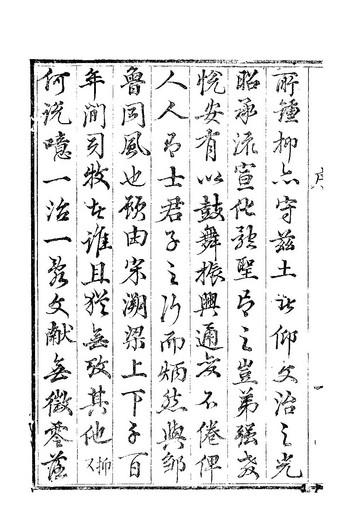 序
所鍾抑亦守茲土者仰文治之光
昭承流宣化聖之豈弟強教
悅安有以鼓舞振興通變不倦俾
人人有士君子之行而炳然與鄒
魯同風也顧由宋溯梁上下千百
年間司牧者誰且猶無攷其他抑又
何說噫一治一亂文獻無徵零落